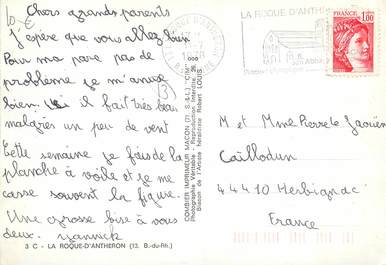 10€
Chers grands parents
J'espère que vous allez bien
Pour ma part pas de
problème je m'amuse
bien. Ici il fait très beau
malgrès un peu de vent
Cette semaine je fais de la
planche à voile et je me
casse souvent la figure.
Une grosse bise à vous
deux. Yannick
3 C - LA ROQUE-D'ANTHERON (13. B.-du-Rh.)
3
COMBIER IMPRIMEUR MACON (71. S.-&-L.) "CIM"
Photographie Véritable - Reproduction Interdite. 26
Blason de l'Artiste héraldiste Robert LOUIS
LA ROQUE D'ANTHERON
FRANCE
1,00
M et Mme Pierre Le
Caillodun
44410 Herbignac
France